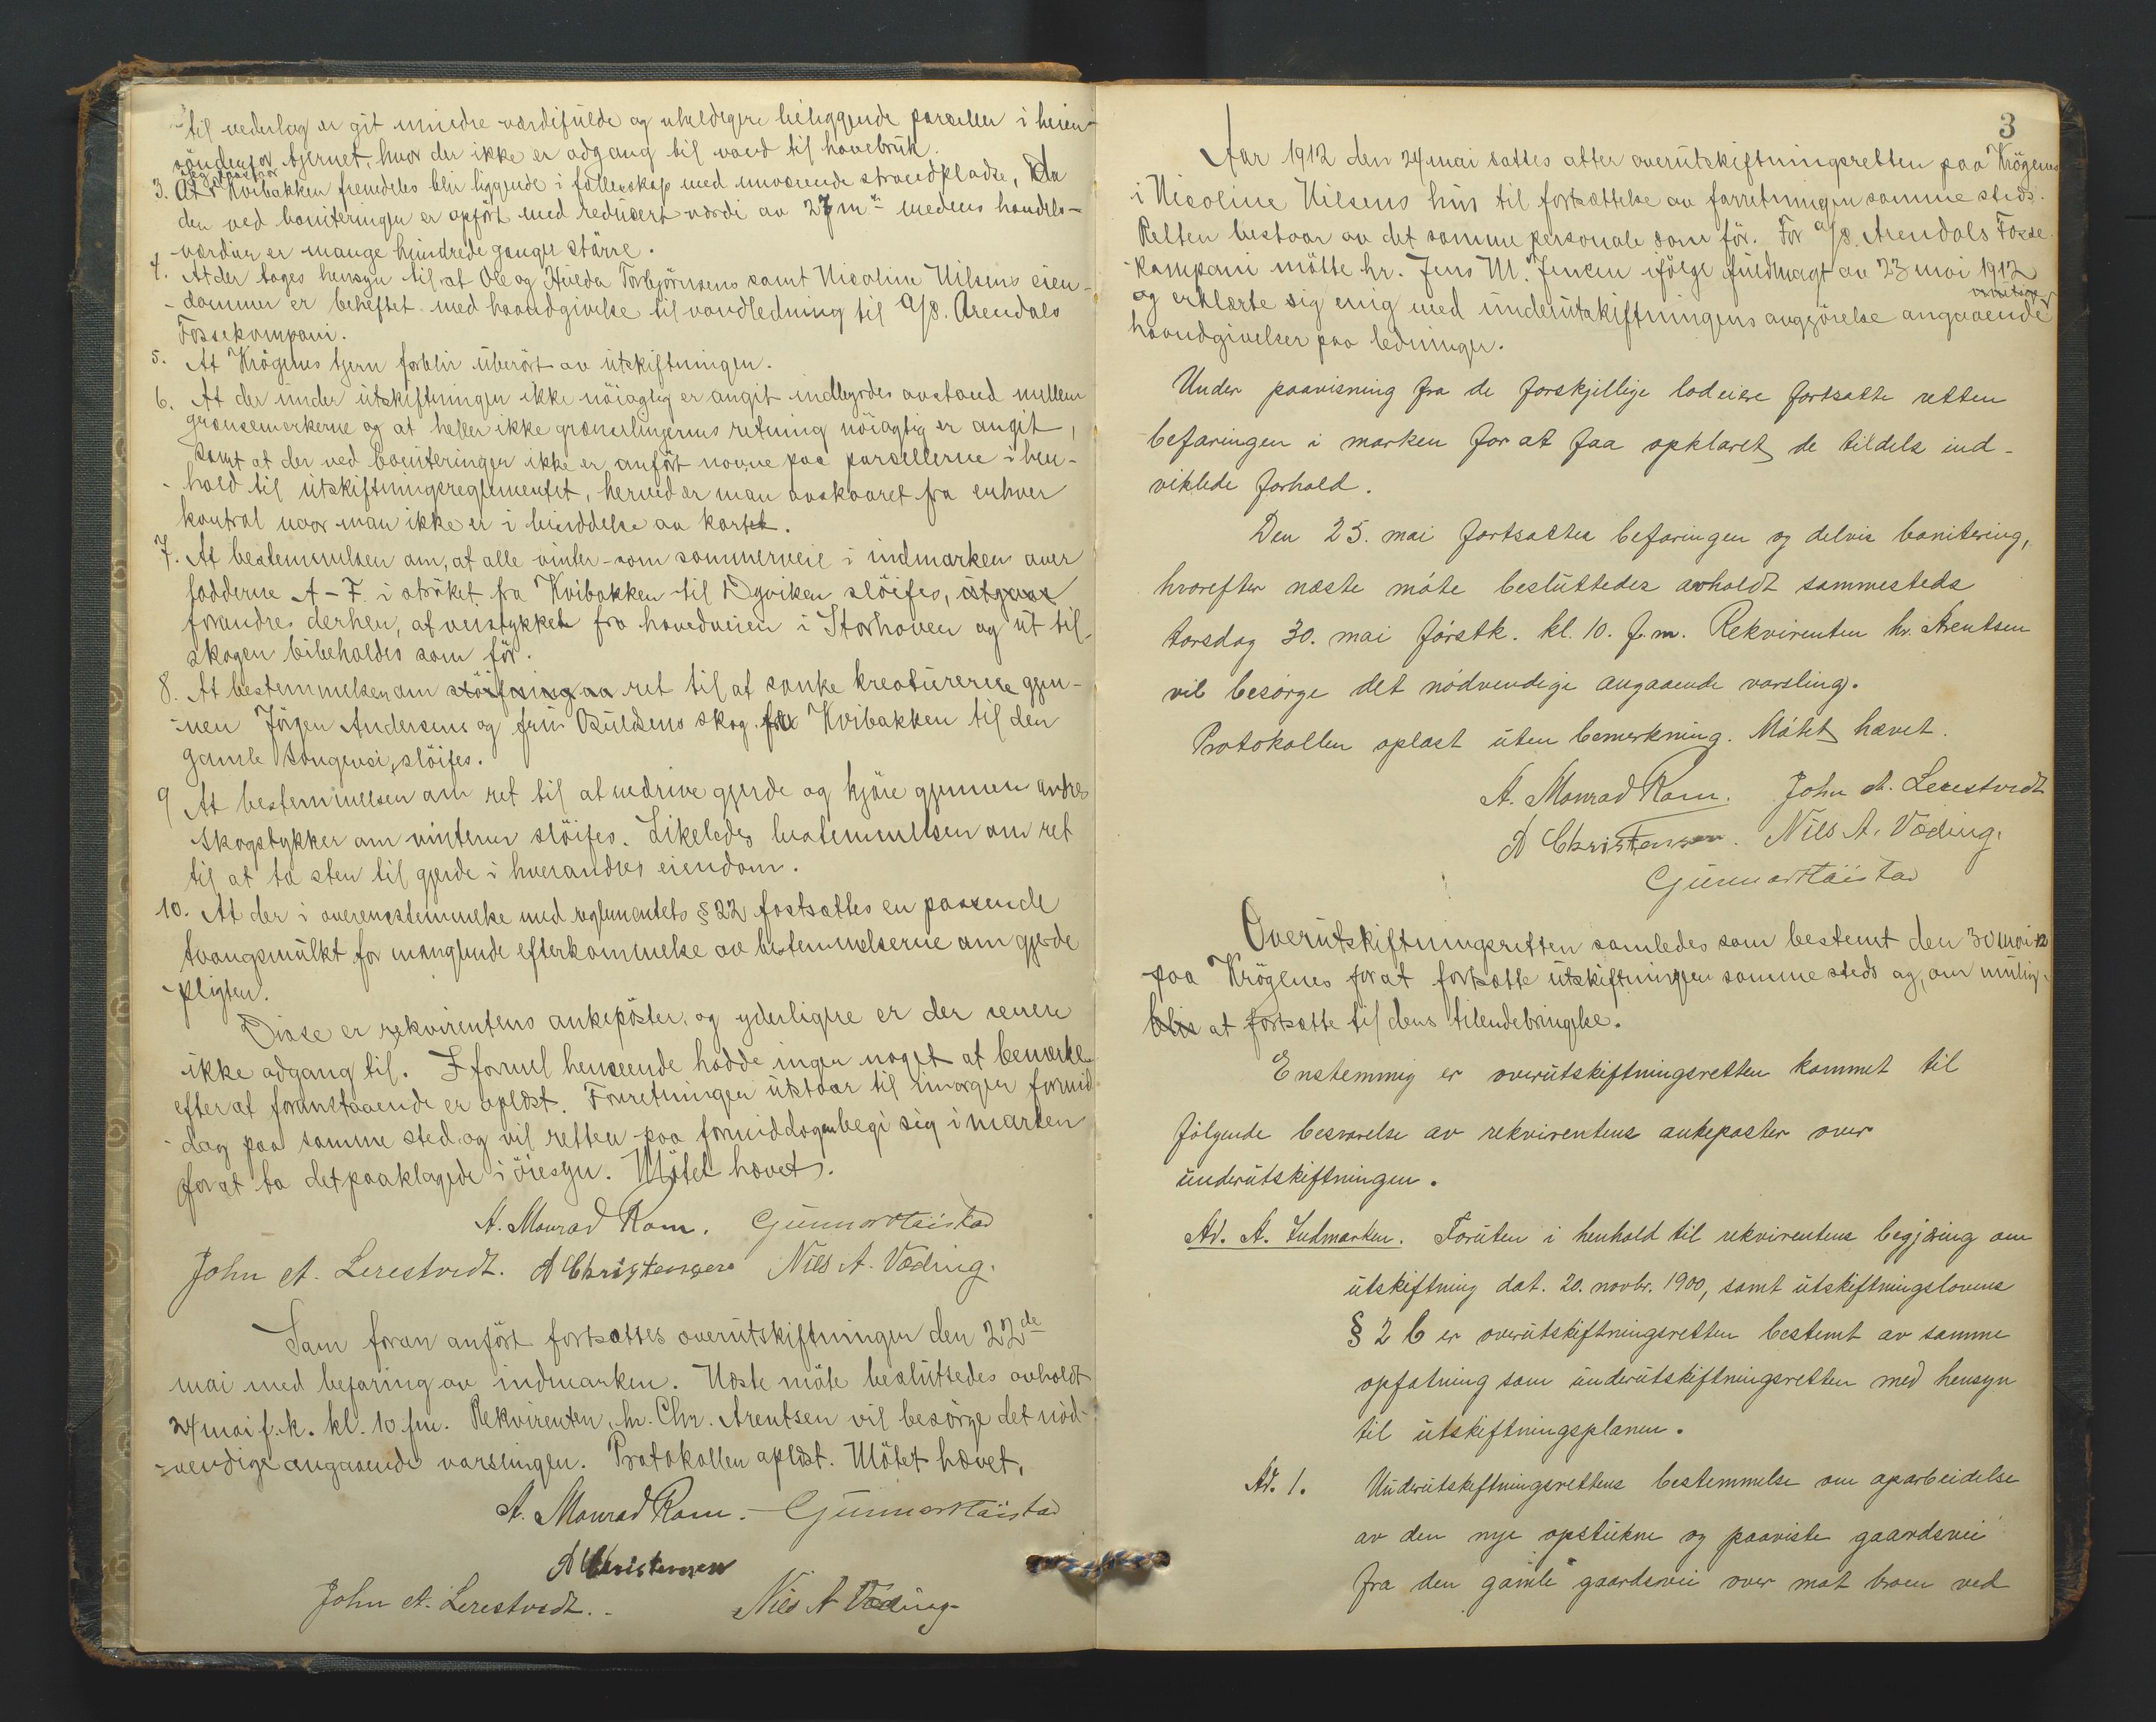 til vederlag er git mindre værdifulde og uheldigere beliggende parseller i heien
söndenfor tjernet, hvor der ikke er adgang til vand til havebruk.
3. At Kvibakken fremdeles blir liggende i fællesskap med nuværende strandpladse, da
den ved boniteringen er opfört med reducert værdi av 27 m² medens handels-
værdien er mange hundrede ganger större.
4. At der tages hensyn til at Ole og Hulda Torbjörnsens samt Nicoline Nilsens eien-
-dommer er beheftet med haandgivelse til vandledning til A/S. Arendals
Fossekompani.
5. At Krögenes tjern forblir uberört av utskiftningen.
6. At der under utskiftningen ikke nöiagtig er angit indbyrdes avstand mellem
grænsemerkerne og at heller ikke grænselinjernes retning nöiagtig er angit,
samt at der ved boniteringen ikke er anfört navne paa parsellerne i hen-
-hold til utskiftningsreglementet, herved er man avskaaret fra enhver
kontrol naar man ikke er i besiddelse av kartet.
7. At bestemmelsen om, at alle vinter- som sommerveie i indmarken over
lodderne A-F. i ströket fra Kvibakken til Dyviken slöifes,
forandres derhen, at veistykket fra hovedveien i Storhaven og ut til
skogen bibeholdes som för.
8. At bestemmelsen om ret til at sanke kreaturerne gjen-
-nem Jörgen Andersens og fru Osuldsens skog fra Kvibakken til den
gamle Songevei, slöifes.
9 At bestemmelsen om ret til at nedrive gjerde og kjöre gjennem andres
skogstykker om vinteren slöifes. Likeledes bestemmelsen om ret
til at ta sten til gjerde i hverandres eiendom.
10. At der i overensstemmelse med reglementets § 22 fastsættes en passende
tvangsmulkt for manglende efterkommelse av bestemmelserne om gjerde
pligten.
Disse er rekvirentens ankeposter, og yderligere er der senere
ikke adgang til. I formel henseende hadde ingen noget at bemerke
efterat foranstaaende er oplæst. Forretningen utstaar til imorgen formid-
-dag paa samme sted og vil retten paa formiddagen begi sig i marken
for at ta det paaklagede i öiesyn. Mötet hævet.
A. Monrad Rom. Gunnar
John A. Lerestvedt. A Christensen Nils A. Væding.
Som foran anfört fortsattes overutskiftningen den 22de
mai med befaring av indmarken. Næste möte besluttedes avholdt
24 mai f.k. kl. 10 fm. Rekvirenten hr. Chr. Arentsen vil besörge det nöd-
-vendige angaaende varslingen. Protokollen oplæst. Mötet hævet.
A. Monrad Rom. Gunnar
A Christensen
John A. Lerestvedt. Nils A Væding
3
Aar 1912 den 24 mai sattes atter overutskiftningsretten paa Krögenes
i Nicoline Nilsens hus til fortsættelse av forretningen samme steds.
Retten bestaar av det samme personale som för. For A/S. Arendals Fosse-
-kompani mötte hr. Jens M. Jensen ifölge fuldmagt av 23 mai 1912
og erklærte sig enig med underutskiftningens avgjörelse angaaende
haandgivelser paa ledninger.
Under paavisning fra de forskjellige lodeiere fortsatte retten
befaringen i marken for at faa opklaret de tildels ind-
viklede forhold.
Den 25. mai fortsattes befaringen og delvis bonitering,
hvorefter næste möte besluttedes avholdt sammesteds
torsdag 30. mai förstk. kl. 10. f.m. Rekvirenten hr. Arentsen
vil besörge det nödvendige angaaende varsling.
Protokollen oplæst uten bemerkning. Mötet hævet.
A. Monrad Rom. John A. Lerestvedt
A Christensen. Nils A. Væding.
Gunnar
Overutskiftningsretten samledes som bestemt den 30 mai 12
paa Krögenes for at fortsætte utskiftningen samme steds og, om mulig
at fortsætte til dens tilendebringelse.
Enstemmig er overutskiftningsretten kommet til
fölgende besvarelse av rekvirentens ankeposter over
underutskiftningen.
Ad. A. Indmarken. Foruten i henhold til rekvirentens begjæring om
utskiftning dat. 20. novbr. 1900, samt utskiftningslovens
§ 2 b er overutskiftningsretten bestemt av samme
opfatning som underutskiftningsretten med hensyn
til utskiftningsplanen.
Ad. 1. Underutskiftningsrettens bestemmelse om oparbeidelse
av den nye opstukne og paaviste gaardsvei
fra den gamle gaardsvei over mot broen ved